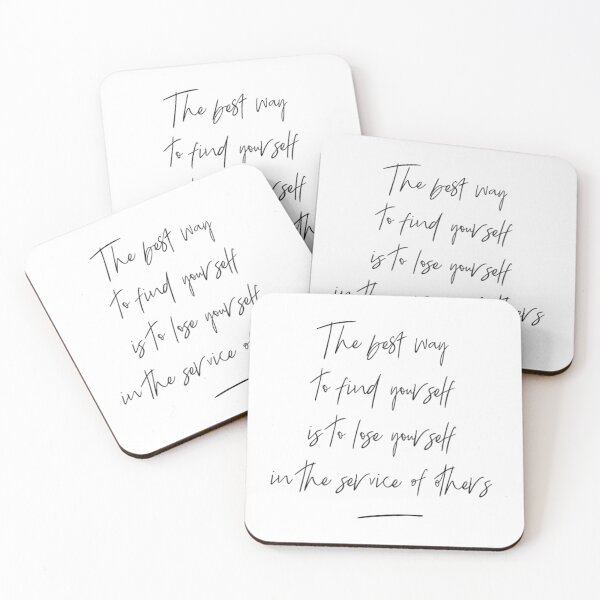 The best way
to find yourself
The best way
to find yourself
is to lose yourself
in the
The best way
to find yourself
is to lose yourself
in the service of
The best way
to find yourself
is to lose yourself
in the service of others